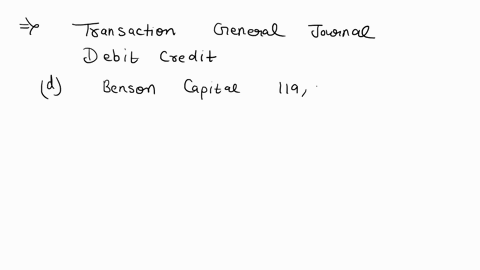 ⇒ Transaction General Journal
Debit Credit
(d) Benson Capital 119,